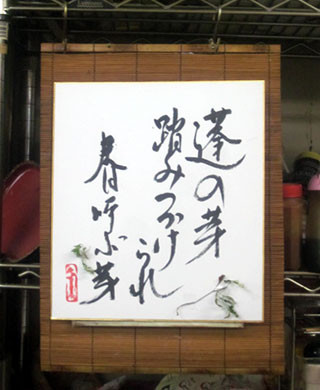 蓬の芽
踏みつけられ
春呼ぶ芽